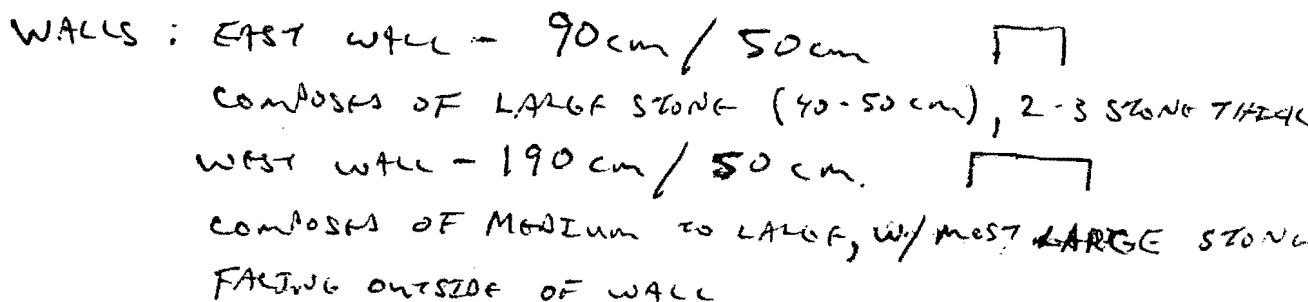 WALLS : EAST WALL - 90cm / 50cm
COMPOSED OF LARGE STONE (40-50cm), 2-3 STONE THICK
WEST WALL - 190cm / 50cm.
COMPOSED OF MEDIUM TO LARGE, W/ MOST LARGE STONE
FACING OUTSIDE OF WALL